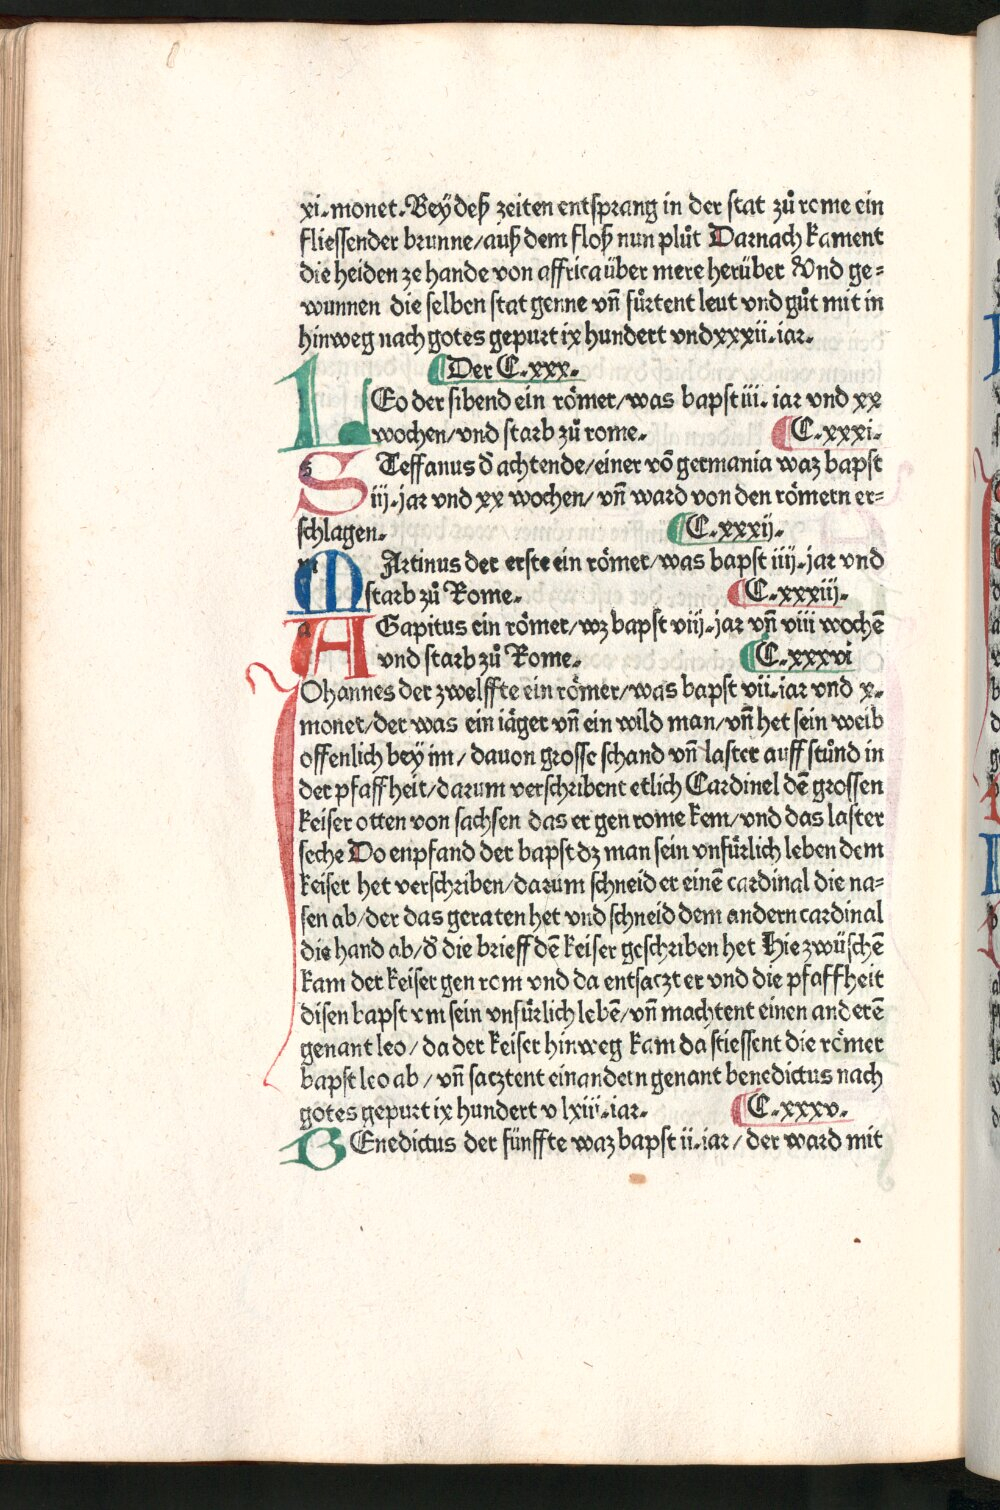 xi. monet. Beÿ deß zeiten entsprang in der stat zuͦ rome ein
fliessender brunne/auß dem floß nun pluͦt Darnach kament
die heiden ze hande von affrica über mere herüber Vnd ge=
wunnen die selben stat genne vn̄ fuͤrtent leut vnd guͦt mit in
hinweg nach gotes gepurt ix hundert vnd xxxii. iar.
Der C.xxx.
LEo der sibend ein roͤmer/was bapst iii. iar vnd xx
wochen/vnd starb zuͦ rome. C.xxxi.
STeffanus d̄ achtende/einer vō germania waz bapst
iij. jar vnd xx wochen/vn̄ ward von den roͤmern er=
schlagen. C.xxxij.
MArtinus der erste ein roͤmer/was bapst iiij. jar vnd
starb zuͦ Rome. C.xxxiij.
AGapitus ein roͤmer/wz bapst viij. jar vn̄ viii wochē
vnd starb zuͦ Rome. C.xxxvi
IOhannes der zwelffte ein roͤmer/was bapst vii. iar vnd x.
monet/der was ein iaͤger vn̄ ein wild man/vn̄ het sein weib
offenlich bey im/dauon grosse schand vn̄ laster auff stuͦnd in
der pfaffheit/darum verschribent etlich Cardinel dē grossen
keiser otten von sachsen das er gen rome kem/vnd das laster
seche Do enpfand der bapst dz man sein vnfuͤrlich leben dem
keiser het verschriben/darum schneid er einē cardinal die na=
sen ab/der das geraten het vnd schneid dem andern cardinal
die hand ab/d̄ die brieff dē keiser geschriben het Hie zwüschē
kam der keiser gen rom vnd da entsaczt er vnd die pfaffheit
disen bapst vm sein vnfuͤrlich lebē/vn̄ machtent einen anderē
genant leo/da der keiser hinweg kam da stiessent die roͤmer
bapst leo ab/vn̄ sacztent ein andern genant benedictus nach
gotes gepurt ix hundert v lxiii. iar. C.xxxv.
BEnedictus der fünffte waz bapst ii. iar/der ward mit